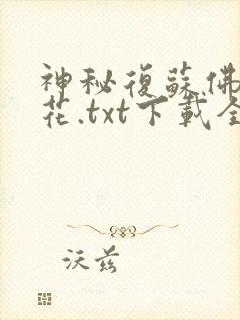 神秘復蘇佛
花.txt下載全
沃茲